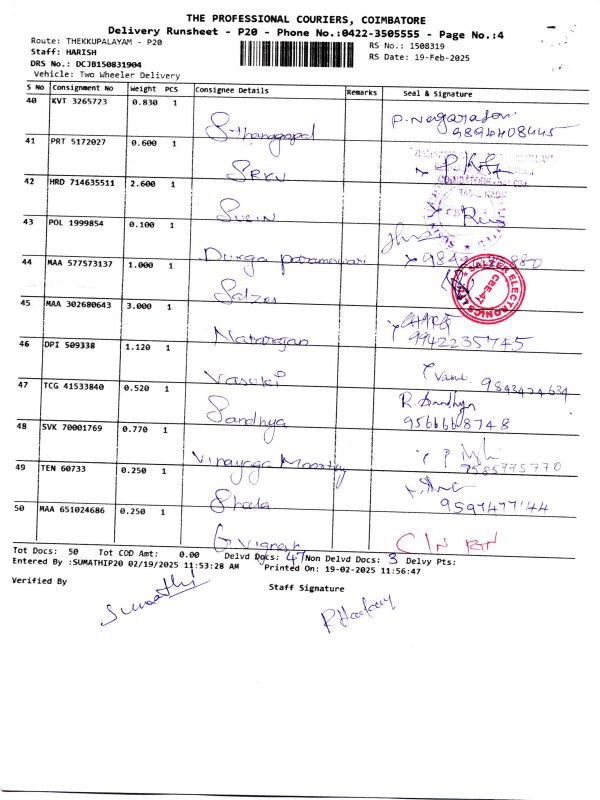 THE PROFESSIONAL COURIERS, COIMBATORE
Delivery Runsheet - P20 - Phone No.:0422-3505555 - Page No.:4
Route: THEKKUPALAYAM - P20
RS No.: 1508319
Staff: HARISH
RS Date: 19-Feb-2025
DRS No.: DCJB150831904
Vehicle: Two Wheeler Delivery
S No Consignment No Weight PCS Consignee Details Remarks Seal & Signature
40 KVT 3265723 0.830 1 P. Nagarajan
9894408445
41 PRT 5172027 0.600 1
SRKV
42 HRD 714635511 2.600 1
43 POL 1999854 0.100 1
Durga parameswari
44 MAA 577573137 1.000 1
Salzer SALZER ELECTRONICS CBE-47
45 MAA 302680643 3.000 1
Natarajan 9942235745
46 DPI 509338 1.120 1
Vasuki Vasu 9843424634
47 TCG 41533840 0.520 1 R. Sandhya
Sandhya 9566668748
48 SVK 70001769 0.770 1
Vinayaga Moorthy 7385775770
49 TEN 60733 0.250 1
Sheela
50 MAA 651024686 0.250 1
G vignesh C/N RTN
Tot Docs: 50 Tot COD Amt: 0.00 Delvd Docs: 47 Non Delvd Docs: 3 Delvy Pts:
Entered By :SUMATHIP20 02/19/2025 11:53:28 AM Printed On: 19-02-2025 11:56:47
Verified By Staff Signature
Sumathi